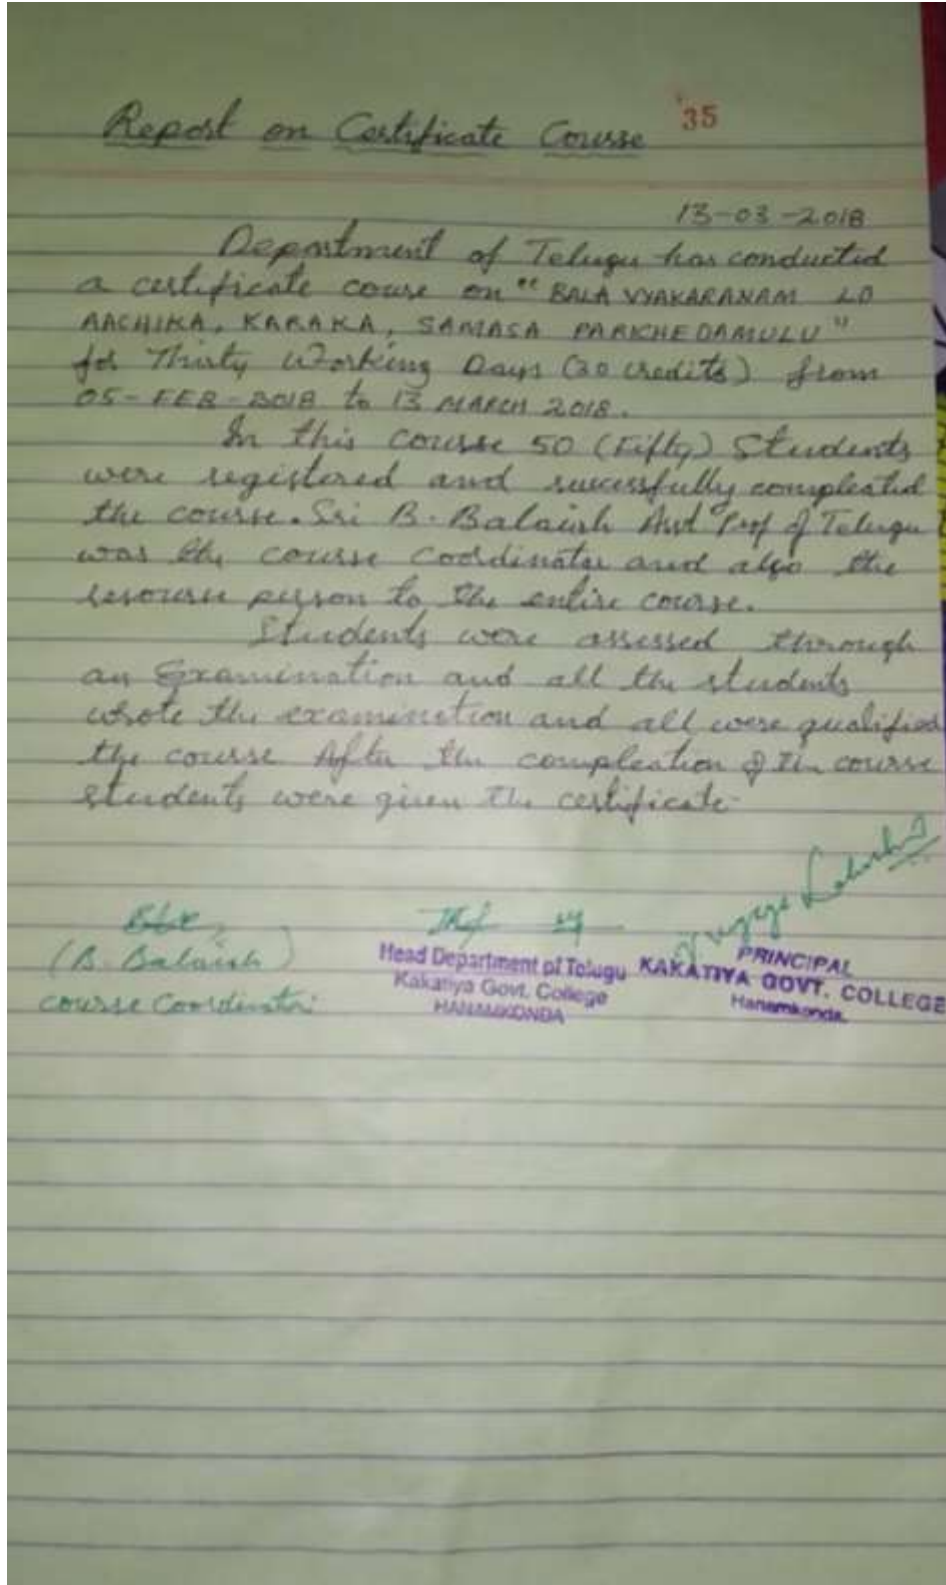 35
Report on Certificate Course
13-03-2018
Department of Telugu has conducted
a certificate couse on "BALA VYAKARANAM LO
AACHIKA, KARAKA, SAMASA PARICHEDAMULU"
for Thirty Working Days (30 credits) from
05-FEB-2018 to 13 MARCH 2018.
In this course 50 (Fifty) Students
were registered and sucessfully compleated
the course. Sri B. Balaiah Asst Prof of Telugu
was the course coordinator and also the
resourse person to the entire course.
Students were assessed through
an Examination and all the students
wrote the examination and all were qualified
the course After the compleation of the course
students were given the certificate
(B. Balaiah)
Course Coordinator
Head Department of Telugu
Kakatiya Govt. College
HANAMKONDA
PRINCIPAL
KAKATIYA GOVT. COLLEGE
Hanamkonda.